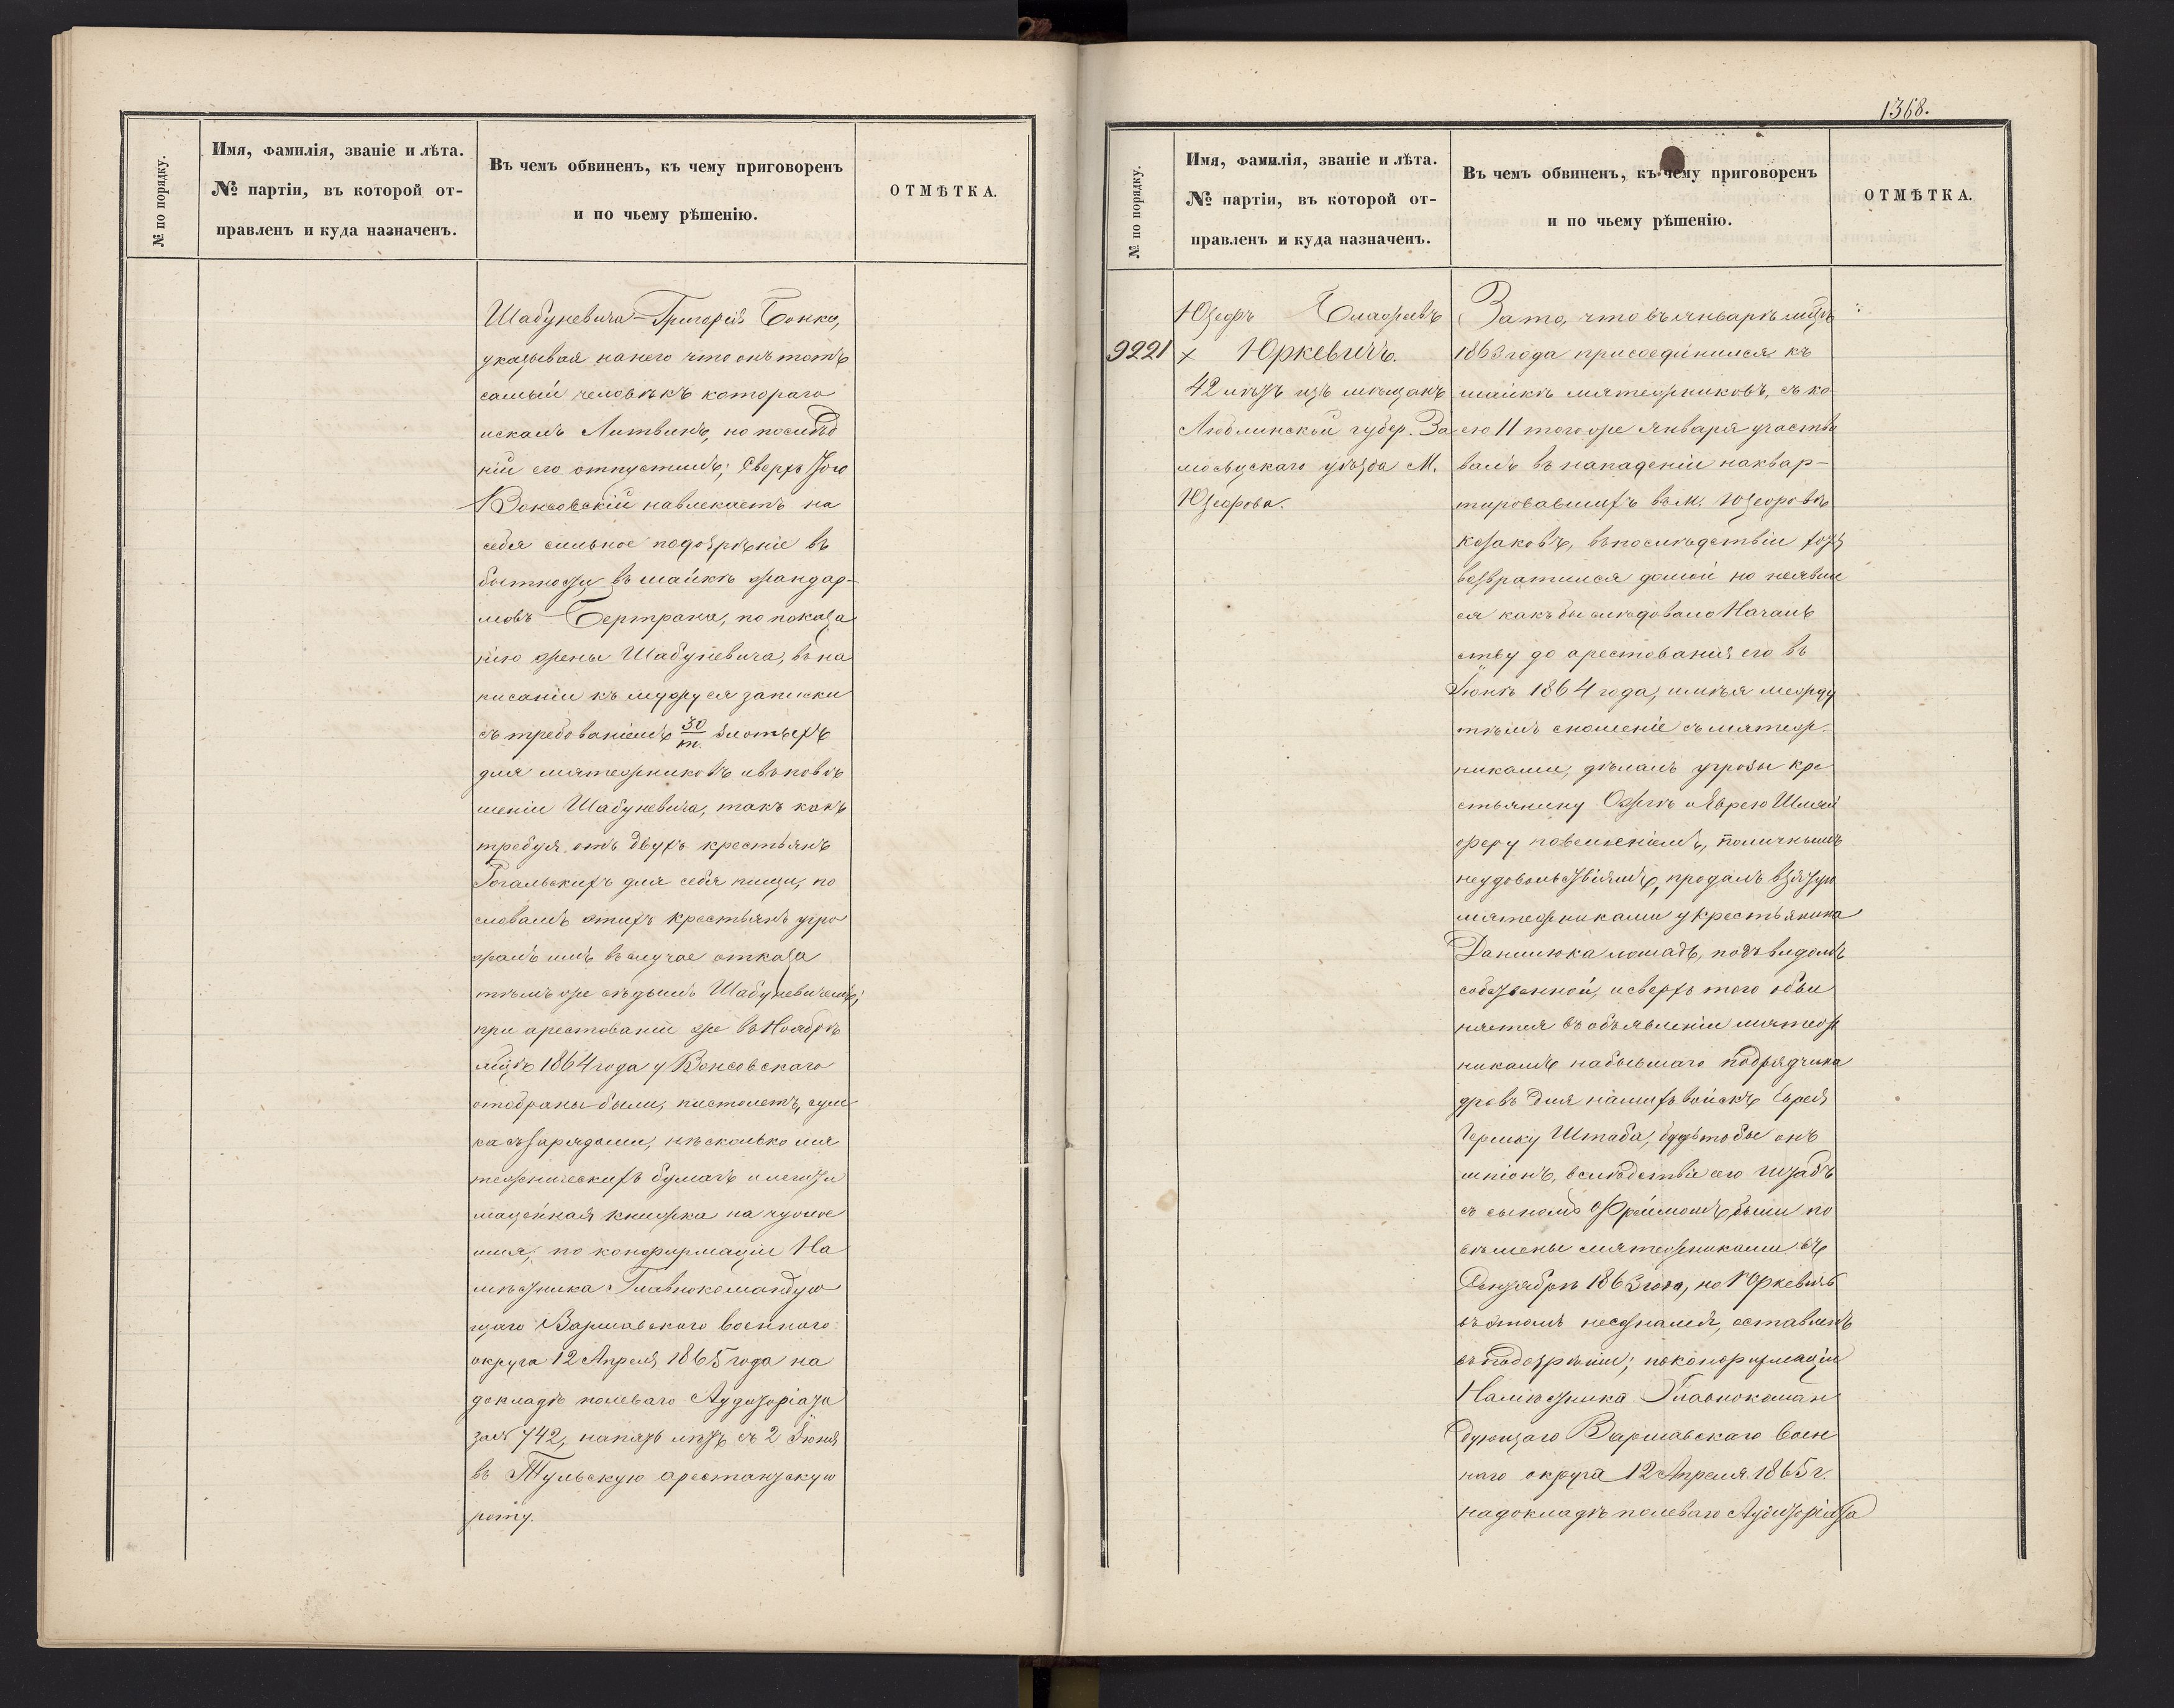 № по порядку.
Имя, фамилія, званіе и лѣта.
№ партіи, въ которой от-
правленъ и куда назначенъ.
Въ чемъ обвиненъ, къ чему приговоренъ
и по чьему рѣшенію.
ОТМѢТКА.
Шабуневича – Григорій Бонко,
указывая на него что онъ тотъ
самый человѣкъ котораго
искалъ Литвинъ, но послѣд
ній его отпустилъ; Сверхъ того
Вонсовскій навлекаетъ на
себя сильное подозрѣніе въ
бытности въ шайкѣ жандар-
мовъ Бертрана, по показа
нію жены Шабуневича, въ на
писаніи къ мужу ея записки
съ требованіемъ 30/т. злотыхъ
для мятежниковъ и въ повѣ
шеніи Шабуневича, такъ какъ
требуя отъ двухъ крестьянъ
Рогальскихъ для себя пищи, по
словамъ этихъ крестьянъ угро
жалъ имъ въ случае отказа
тѣмъ же съ
Шабуневичемъ;
при арестованіи же въ Ноябрѣ
мцѣ 1864 года у Вонсовскаго
отобраны были, пистолетъ, сум
ка съ зарядами, нѣсколько мя
тежническихъ бумагъ и легити
маційная книжка на чужое
имя; по конфирмаціи На
мѣстника Главнокомандую
щаго Варшавскаго военнаго
округа 12 Апреля 1865 года на
докладѣ полеваго Аудиторіата
за № 742, на пять лѣтъ съ 2 Іюня
въ Тульскую арестантскую
роту.
1368.
№ по порядку.
Имя, фамилія, званіе и лѣта.
№ партіи, въ которой от-
правленъ и куда назначенъ.
Въ чемъ обвиненъ, къ чему приговоренъ
и по чьему рѣшенію.
ОТМѢТКА.
Юзефъ
9221 × Юркевичъ.
42 лѣтъ изъ мѣщанъ
Люблинской губер. За
мосьцскаго уѣзда М.
Юзефова.
За то, что въ январѣ мцѣ
1863 года присоединился къ
шайкѣ мятежниковъ, съ ко
ею 11 того же Января участво
валъ въ нападеніи на квар-
тировавшихъ въ М. Юзефовѣ
козаковъ, въпослѣдствіи хотя
возвратился домой но неявил
ся какъ бы слѣдовало Началь
ству до арестованія его въ
Іюнѣ 1864 года, имѣя между
тѣмъ сношеніе съ мятеж-
никами, дѣлалъ угрозы кре
стьянину Ожгѣ и Еврею Шлей
феру повешеніемъ, по личнымъ
неудовольствіямъ, продалъ взятую
мятежниками у крестьянина
Данилюка лошадь, подъ видомъ
собственной, и сверхъ того обви
няется въ объявленіи мятеж
никамъ на бывшаго подрядчика
дровъ для нашихъ войскъ Еврея
Гершку Штаба, будьтобы онъ
шпіонъ, вслѣдствіе его Штабъ
съ сыномъ Фроимомъ были по
вѣшены мятежниками въ
1863 года, но Юркевичъ
въ этомъ несознался, оставленъ
въ подозрѣніи; по конфирмаціи
Намѣстника Главнокоман
дующаго Варшавскаго воен
наго округа 12 Апреля 1865 г.
на докладѣ полеваго Аудиторіата